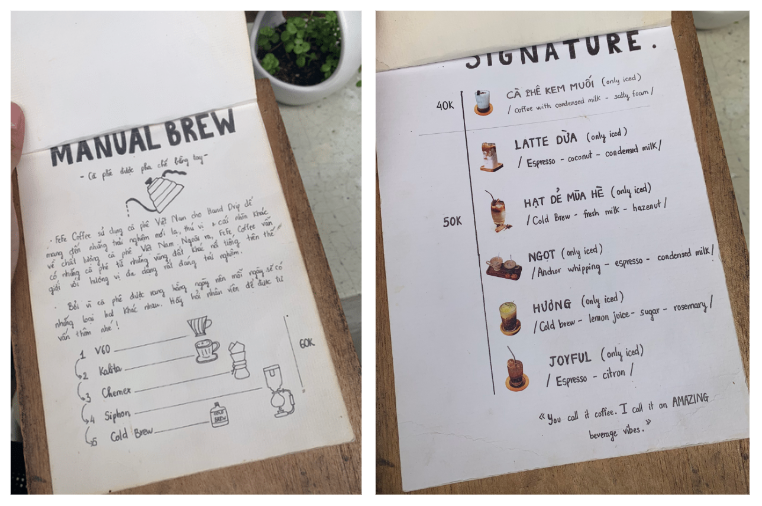 MANUAL BREW
- Cà phê được pha chế bằng tay -
- FeFe Coffee sử dụng cà phê Việt Nam cho Hand Drip để
mang đến những trải nghiệm mới lạ, thú vị & cái nhìn khác
về chất lượng cà phê Việt Nam. Ngoài ra, FeFe Coffee vẫn
có những cà phê từ những vùng đất khác nổi tiếng trên thế
giới với hương vị đa dạng nơi đang trải nghiệm.
- Bởi vì cà phê được rang hằng ngày nên mỗi ngày sẽ có
những loại hạt khác nhau. Hãy hỏi nhân viên để được tư
vấn thêm nhé!
1 V60
2 Kalita
3 Chemex
4 Siphon
5 Cold Brew
COLD BREW
60K
SIGNATURE.
40K
CÀ PHÊ KEM MUỐI (only iced)
/ Coffee with condensed milk - salty foam /
50K
LATTE DỪA (only iced)
/ Espresso - coconut - condensed milk /
HẠT DẺ MÙA HÈ (only iced)
/ Cold Brew - fresh milk - hazenut /
NGOT (only iced)
/ Anchor whipping - espresso - condensed milk /
HƯƠNG (only iced)
/ Cold brew - lemon joice - sugar - rosemary /
JOYFUL (only iced)
/ Espresso - citron /
"You call it coffee. I call it an AMAZING
beverage vibes."